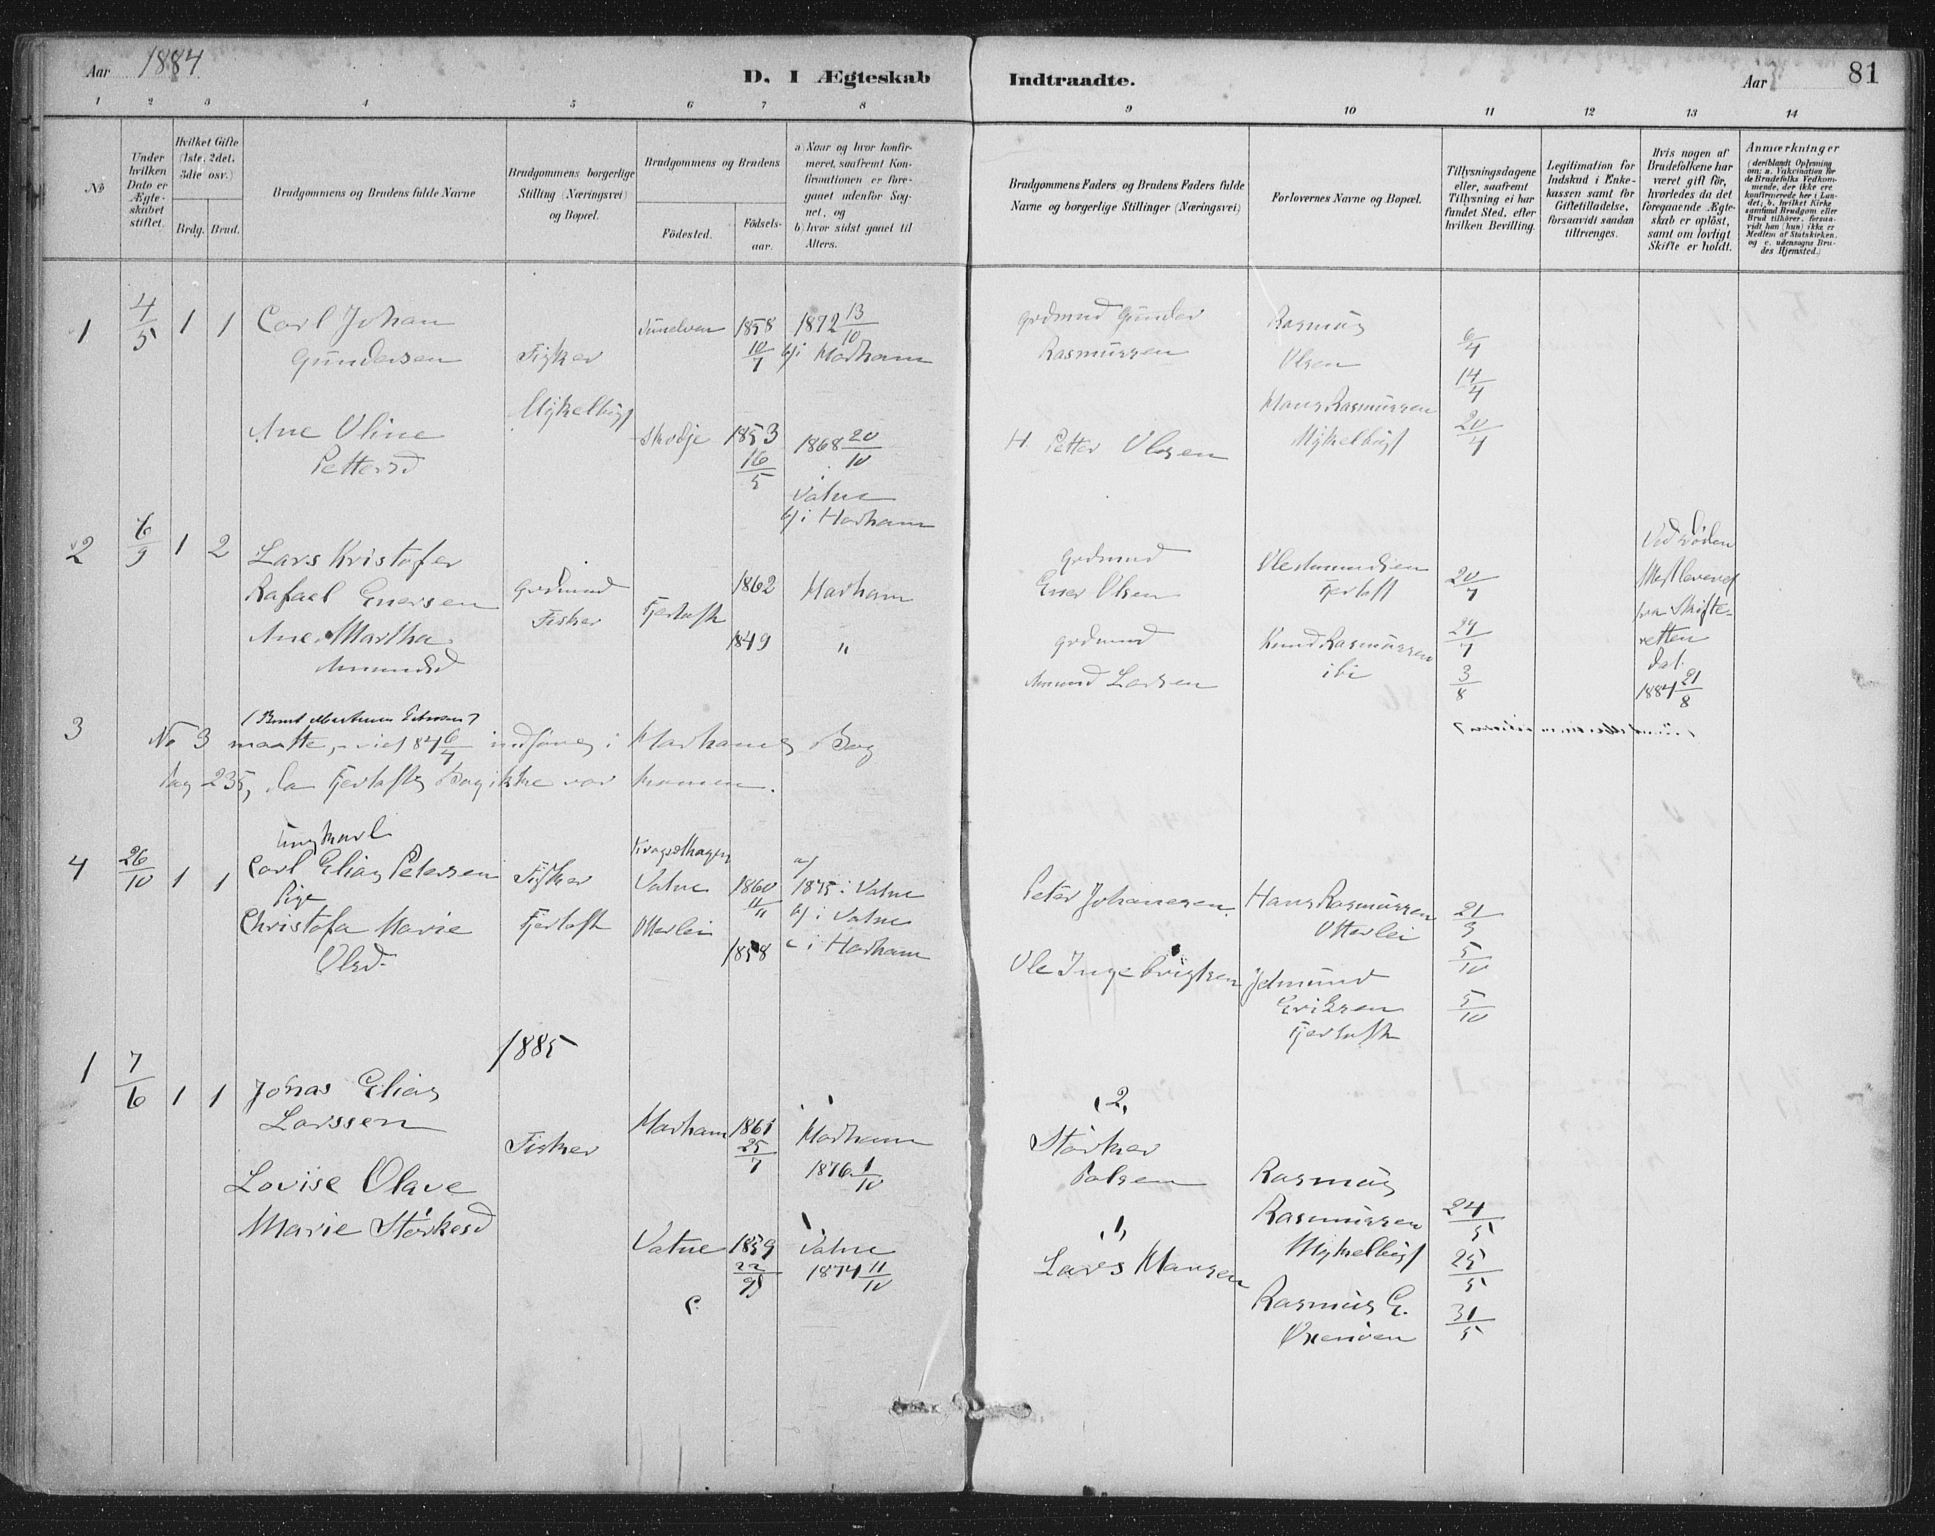 Aar 1884
D. I Ægteskab Indtraadte.
Aar
81
1 2 3 4 5 6 7 8 9 10 11 12 13 14
No
Under hvilken Dato er Ægteskabet stiftet.
Hvilket Gifte (1ste, 2det, 3die osv.)
Brdg. Brud.
Brudgommens og Brudens fulde Navne
Brudgommens borgerlige Stilling (Næringsvei) og Bopæl.
Brudgommens og Brudens
Födested.
Födselsaar.
a) Naar og hvor konfirmeret, saafremt Konfirmationen er foregaaet udenfor Sognet, og
b) hvor sidst gaaet til Alters.
Brudgommens Faders og Brudens Faders fulde Navne og borgerlige Stillinger (Næringsvei)
Forlovernes Navne og Bopæl.
Tillysningsdagene eller, saafremt Tillysning ei har fundet Sted, efter hvilken Bevilling.
Legitimation for Indskud i Enkekassen samt for Giftetilladelse, forsaavidt saadan tiltrænges.
Hvis nogen af Brudefolkene har været gift för, hvorledes da det foregaaende Ægteskab er oplöst, samt om lovligt Skifte er holdt.
Anmærkninger
(deriblandt Oplysning om: a. Vakcination för de Brudefolks Vedkommende, der ikke ere konfirmerede her i Landet; b. hvilket Kirkesamfund Brudgom eller Brud tilhörer, forsaavidt han (hun) ikke er Medlem af Statskirken, og c. udensogns Brudes Hjemsted.)
1 4/5 1 1 Carl Johan Gundersen
Fisker
Mykelbust
1858 10/7
1872 13/10
b/i Harham
Grdmnd Gunder Rasmussen
Rasmus Olsen
6/4
14/4
20/4
Ane Oline Pettersd
Skodje 1853 16/5
1868 20/10
Vatne
b/i Harham
H Petter Olsen
Hans Rasmussen Mykelbust
2 6/9 1 2 Lars Kristofer Rafael Enersen
Grdmnd
Fisker
Fjertoft
1862 Harham
Grdmnd
Ener Olsen
Ole Amundsen Fjertoft
20/7
27/7
3/8
Ved Döden
fra Skifteretten
dat.
1884 21/8
Ane Martha Amundsd
1849 "
Grdmnd
Amund Larsen
Knud Rasmussen
ibi
3 No 3 maatte, viet 84 6/7 indföres i Harhams Bog
Pag 235, da Fjertofts Bog ikke var kommen.
4 26/10 1 1
Ungkarl
Carl Elias Petersen
Fisker
Fjertoft
Vatne 1860 11/11
a/
1875 i Vatne
b/ i Vatne
c i Harham
Peter Johanesen.
Hans Rasmussen Otterlei
21/9
5/10
5/10
Pige
Christofa Marie Olsd.
Otterlei 1858
Ole Ingebrigtsen
Edmund Eriksen
Fjertoft
1885
1 7/6 1 1 Jonas Elias Larssen
Fisker
Harham 1861 25/7
Harham
1876 1/10
(2)
Störker Palsen
Rasmus Rasmussen Mykelbust
24/5
25/5
31/5
Lovise Olave Marie Störkesd
Vatne 1859
Vatne
1874 11/10
(1)
Lars Hansen
Rasmus E.